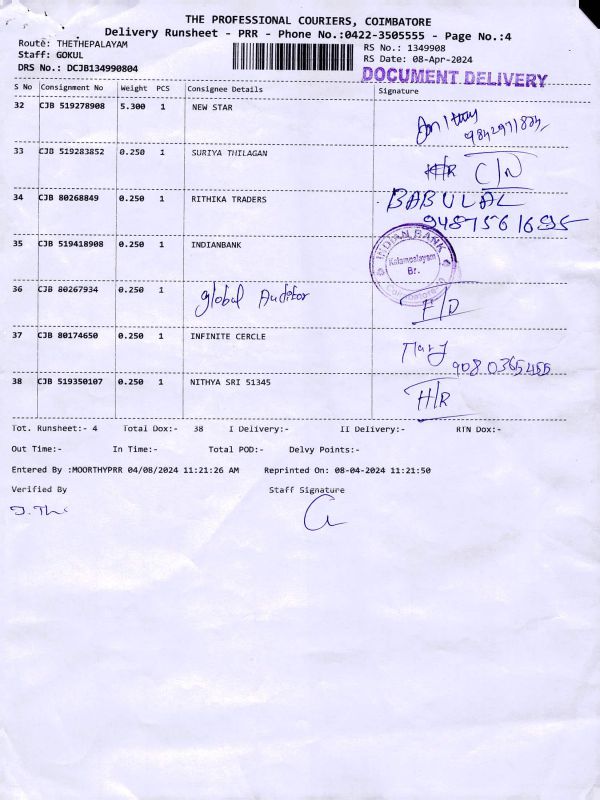 THE PROFESSIONAL COURIERS, COIMBATORE
Delivery Runsheet - PRR - Phone No.:0422-3505555 - Page No.:4
Route: THETHEPALAYAM
RS No.: 1349908
Staff: GOKUL
RS Date: 08-Apr-2024
DRS No.: DCJB134990804
DOCUMENT DELIVERY
S No Consignment No Weight PCS Consignee Details Signature
32 CJB 519278908 5.300 1 NEW STAR
33 CJB 519283852 0.250 1 SURIYA THILAGAN C/N
34 CJB 80268849 0.250 1 RITHIKA TRADERS BABULAL
9487561695
35 CJB 519418908 0.250 1 INDIANBANK
INDIAN BANK
Br.
36 CJB 80267934 0.250 1 Global Auditor
37 CJB 80174650 0.250 1 INFINITE CERCLE
9080365455
38 CJB 519350107 0.250 1 NITHYA SRI 51345 H/R
Tot. Runsheet:- 4 Total Dox:- 38 I Delivery:- II Delivery:- RTN Dox:-
Out Time:- In Time:- Total POD:- Delvy Points:-
Entered By :MOORTHYPRR 04/08/2024 11:21:26 AM Reprinted On: 08-04-2024 11:21:50
Verified By Staff Signature